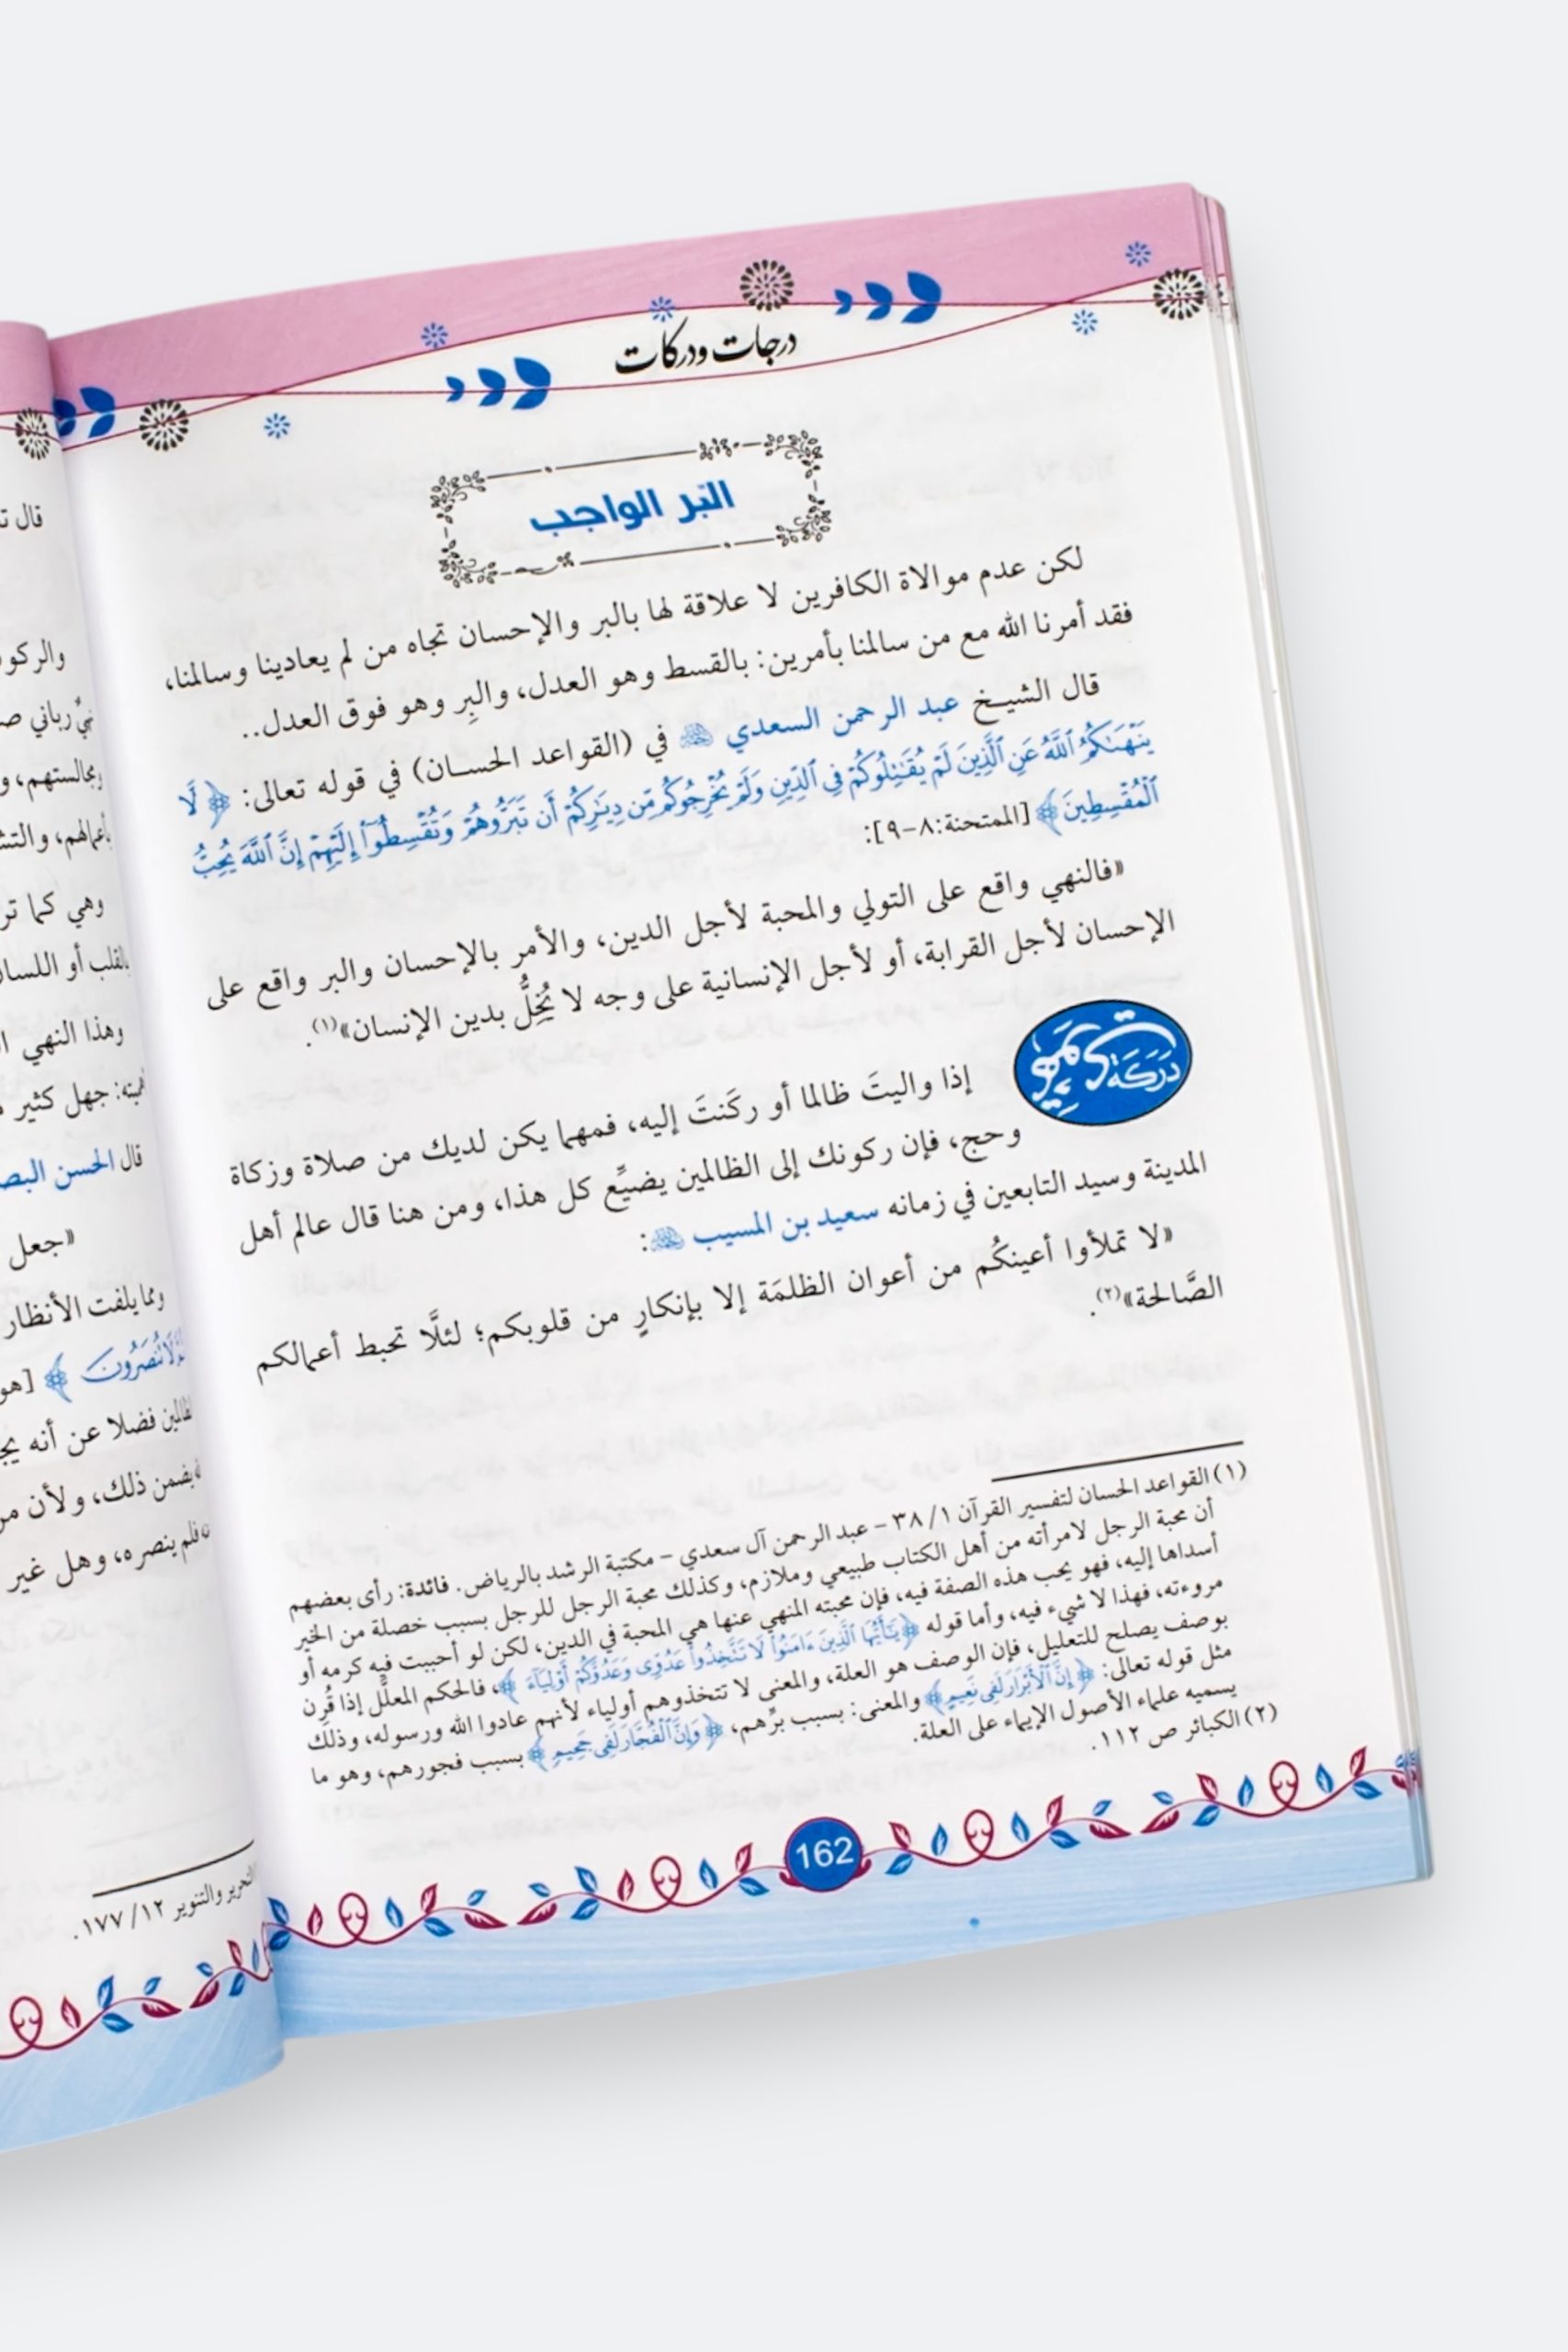 درجات ودركات
البر الواجب
لكن عدم موالاة الكافرين لا علاقة لها بالبر والإحسان تجاه من لم يعادينا وسالمنا،
فقد أمرنا الله مع من سالمنا بأمرين: بالقسط وهو العدل، والبِر وهو فوق العدل..
قال الشيخ عبد الرحمن السعدي في (القواعد الحسان) في قوله تعالى: ﴿لَّا
يَنْهَىٰكُمُ ٱللَّهُ عَنِ ٱلَّذِينَ لَمْ يُقَٰتِلُوكُمْ فِى ٱلدِّينِ وَلَمْ يُخْرِجُوكُم مِّن دِيَٰرِكُمْ أَن تَبَرُّوهُمْ وَتُقْسِطُوٓا۟ إِلَيْهِمْ إِنَّ ٱللَّهَ يُحِبُّ
ٱلْمُقْسِطِينَ﴾ [الممتحنة: ٨-٩]:
«فالنهي واقع على التولي والمحبة لأجل الدين، والأمر بالإحسان والبر واقع على
الإحسان لأجل القرابة، أو لأجل الإنسانية على وجه لا يُخِلُّ بدين الإنسان»(١).
إذا واليتَ ظالما أو ركَنتَ إليه، فمهما يكن لديك من صلاة وزكاة
وحج، فإن ركونك إلى الظالمين يضيِّع كل هذا، ومن هنا قال عالم أهل
المدينة وسيد التابعين في زمانه سعيد بن المسيب :
«لا تملأوا أعينكُم من أعوان الظلمَة إلا بإنكارٍ من قلوبكم؛ لئلَّا تحبط أعمالكم
الصَّالحة»(٢).
(١) القواعد الحسان لتفسير القرآن ١/ ٣٨ – عبد الرحمن آل سعدي – مكتبة الرشد بالرياض. فائدة: رأى بعضهم
أن محبة الرجل لامرأته من أهل الكتاب طبيعي وملازم، وكذلك محبة الرجل للرجل بسبب خصلة من الخير
أسداها إليه، فهو يحب هذه الصفة فيه، فإن محبته المنهي عنها هي المحبة في الدين، لكن لو أحببت فيه كرمه أو
مروءته، فهذا لا شيء فيه، وأما قوله ﴿يَٰٓأَيُّهَا ٱلَّذِينَ ءَامَنُوا۟ لَا تَتَّخِذُوا۟ عَدُوِّى وَعَدُوَّكُمْ أَوْلِيَآءَ﴾، فالحكم المعلَّل إذا قُرِن
بوصف يصلح للتعليل، فإن الوصف هو العلة، والمعنى لا تتخذوهم أولياء لأنهم عادوا الله ورسوله، وذلك
مثل قوله تعالى: ﴿إِنَّ ٱلْأَبْرَارَ لَفِى نَعِيمٍ﴾ والمعنى: بسبب برِّهم، ﴿وَإِنَّ ٱلْفُجَّارَ لَفِى جَحِيمٍ﴾ بسبب فجورهم، وهو ما
يسميه علماء الأصول الإيماء على العلة.
(٢) الكبائر ص ١١٢.
162
والركو
رباني
ومجالستهم، و
وهي كما
بالقلب أو اللسان
وهذا النهي
جهل كثير
قال الحسن
«جعل
ومما يلفت الأنظار
لَا تُنصَرُونَ ﴾
فضلا عن أنه
ذلك، ولأن
فلم ينصره، وهل غير
التحرير والتنوير ١٢/ ١٧٧.